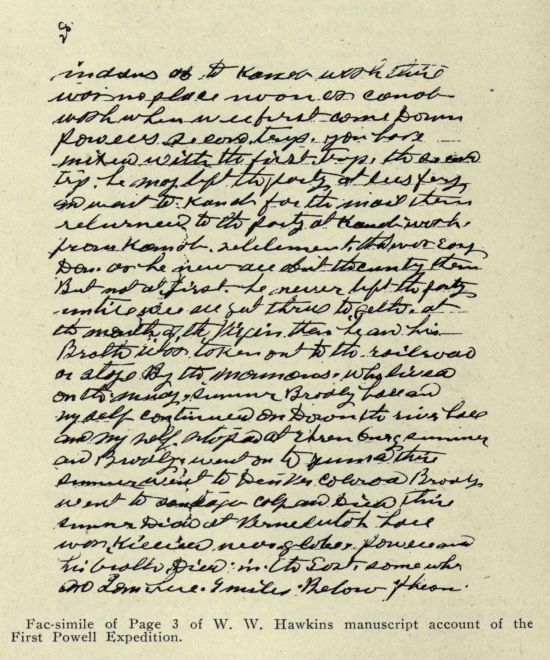 indans as to Kanab wash thire
was no place noon as canab
wash when wee first come Down
Powells second trip. you have
mixed with the first trip, the secon
trip. he may left the party at lees fery
an went to Kanab for the mail then
returned to the party at Kanab wash
from Kanab. settlement that was Easy
Don as he new all about the cunty then
But not at first he never left the party
untill wee all got threw to gether at
the mouth of the Virgin then he an his
Brother was taken out to the railroad
or stage By the mormons who lived
on the muddy. summer Bradly hall and
my self continued on Down the river hall
and my self stoped at Ehrenburg summer
and Bradly went on to yuma thire
summer went to Denver colorod Bradly
went to sandago cal an Died thire
sumner Died at Vernal utah hall
was Killied new globe. Powell and
his brother Died in the East some whe
an I am here. 9 miles Below
Fac-simile of Page 3 of W. W. Hawkins manuscript account of the
First Powell Expedition.